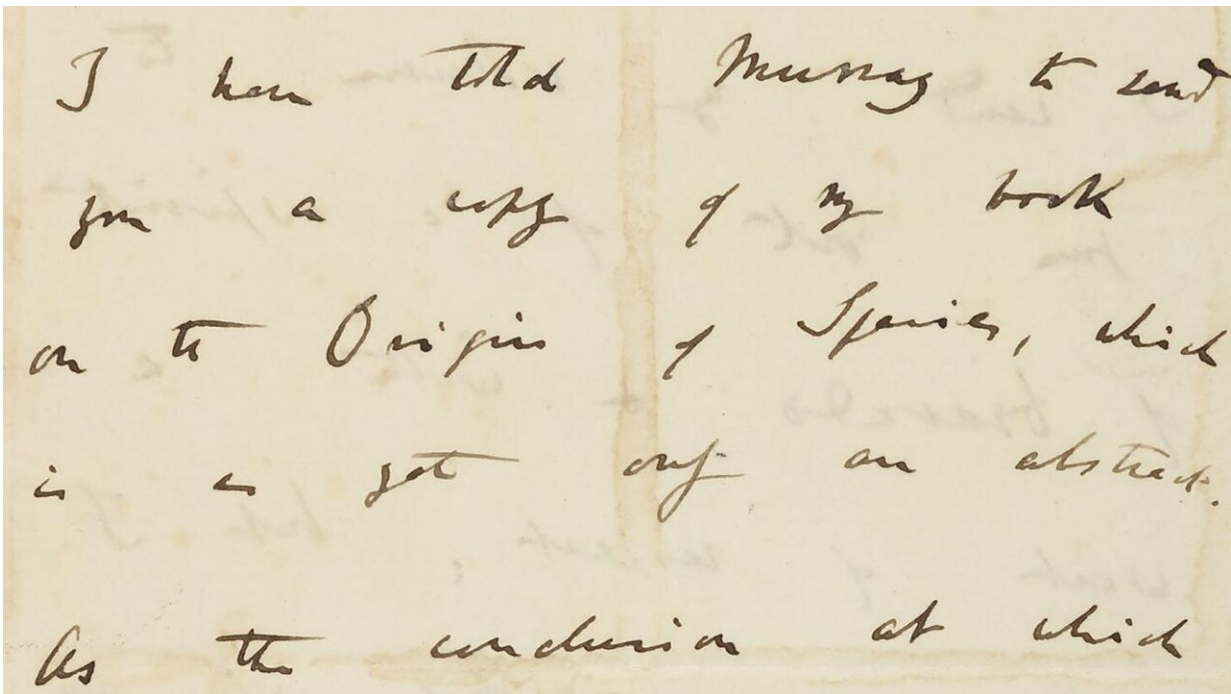 I have told Murray to send
you a copy of my book
on the Origin of Species, which
is as yet only an abstract.
As the conclusion at which